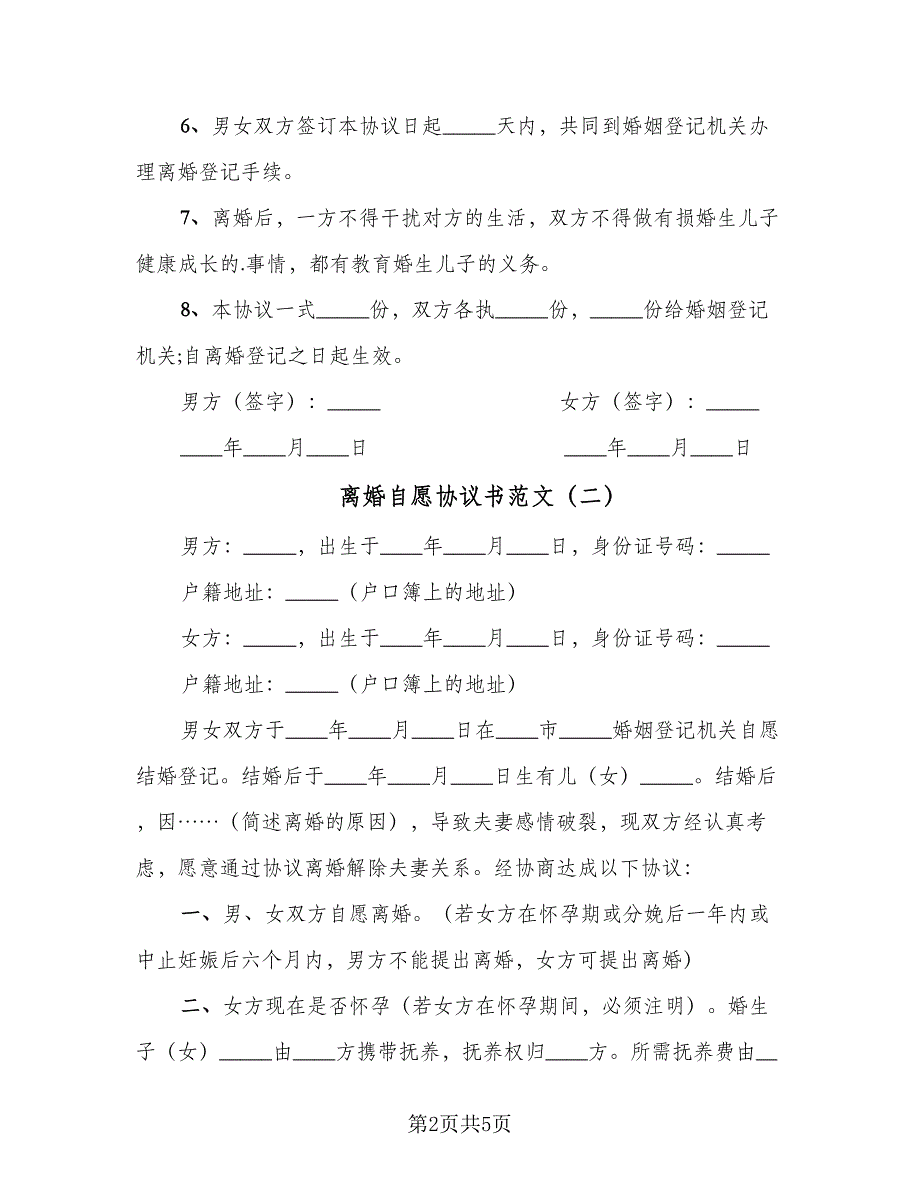 6、男女双方签订本协议日起_____天内，共同到婚姻登记机关办
理离婚登记手续。
7、离婚后，一方不得干扰对方的生活，双方不得做有损婚生儿子
健康成长的.事情，都有教育婚生儿子的义务。
8、本协议一式_____份，双方各执_____份，_____份给婚姻登记
机关;自离婚登记之日起生效。
男方（签字）：_____ 女方（签字）：_____
____年____月____日 ____年____月____日
离婚自愿协议书范文（二）
男方：_____，出生于____年____月____日，身份证号码：_____
户籍地址：_____（户口簿上的地址）
女方：_____，出生于____年____月____日，身份证号码：_____
户籍地址：_____（户口簿上的地址）
男女双方于____年____月____日在____市_____婚姻登记机关自愿
结婚登记。结婚后于____年____月____日生有儿（女）_____。结婚后
，因……（简述离婚的原因），导致夫妻感情破裂，现双方经认真考
虑，愿意通过协议离婚解除夫妻关系。经协商达成以下协议：
一、男、女双方自愿离婚。（若女方在怀孕期或分娩后一年内或
中止妊娠后六个月内，男方不能提出离婚，女方可提出离婚）
二、女方现在是否怀孕（若女方在怀孕期间，必须注明）。婚生
子（女）_____由____方携带抚养，抚养权归____方。所需抚养费由__
第2页共5页